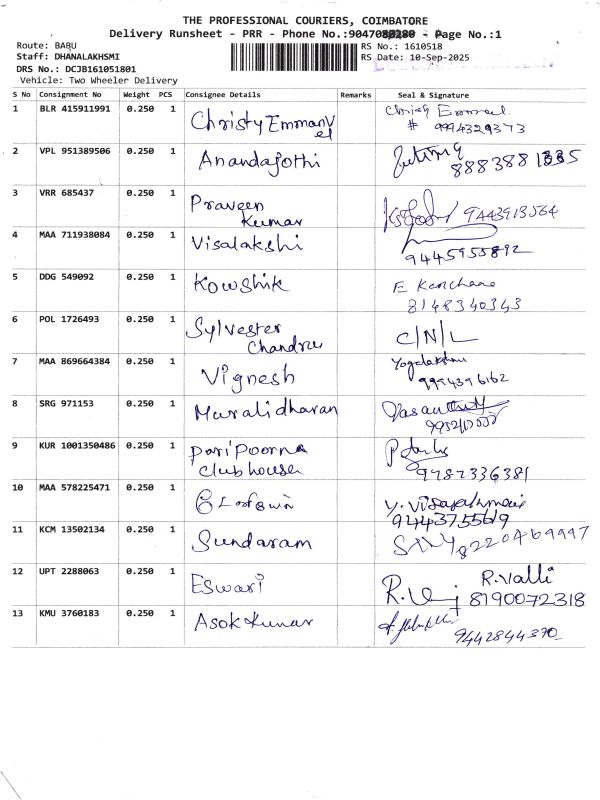 THE PROFESSIONAL COURIERS, COIMBATORE
Delivery Runsheet - PRR - Phone No.: - Page No.:1
Route: BABU
RS No.: 1610518
Staff: DHANALAKHSMI
RS Date: 10-Sep-2025
DRS No.: DCJB161051801
Vehicle: Two Wheeler Delivery
S No Consignment No Weight PCS Consignee Details Remarks Seal & Signature
1 BLR 415911991 0.250 1 Christy Emmanvel Christy Emmanuel
# 9994329373
2 VPL 951389506 0.250 1 Anandajothi
3 VRR 685437 0.250 1 Praveen
Kumar 9443913564
4 MAA 711938084 0.250 1 Visalakshi
9445955892
5 DDG 549092 0.250 1 Kowshik E Kanchana
8148340343
6 POL 1726493 0.250 1 Sylvester
Chandru C/N/L
7 MAA 869664384 0.250 1 Vignesh Yogalakshmi
9994396162
8 SRG 971153 0.250 1 Muralidharan
9 KUR 1001350486 0.250 1 paripoorna
clubhouse 9787336381
10 MAA 578225471 0.250 1
9443755619
11 KCM 13502134 0.250 1 Sundaram 8220469997
12 UPT 2288063 0.250 1 Eswari R.Valli
8190072318
13 KMU 3760183 0.250 1 Asok kumar
9442844390